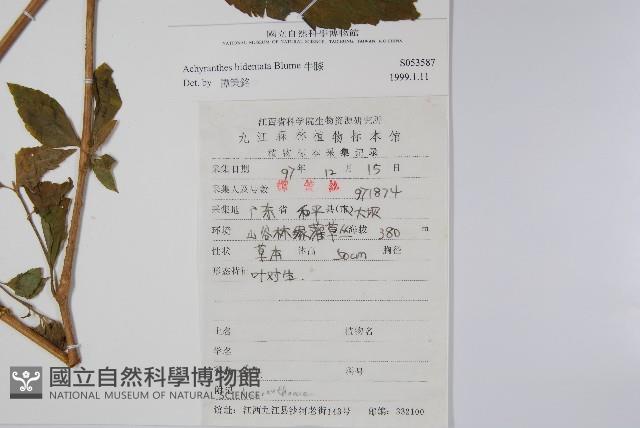 國立自然科學博物館
NATIONAL MUSEUM OF NATURAL SCIENCE, TAICHUNG, TAIWAN, R.O.CHINA
Achyranthes bidentata Blume 牛膝 S053587
Det. by 譚策銘 1999.1.11
江西省科学院生物资源研究所
九江森林植物标本馆
植物标本采集记录
采集日期 97年 12月 15日
采集人及号数 譚策銘 971874
采集地 广东省 和平县(市) 大坝
环境 山谷林缘灌草丛 海拔 380 m
性状 草本 体高 50cm 胸径
形态特征 叶对生.
土名 植物名
学名
科名 科号
附记
國立自然科學博物館
NATIONAL MUSEUM OF NATURAL SCIENCE
馆址: 江西九江县沙河老街143号 邮编: 332100